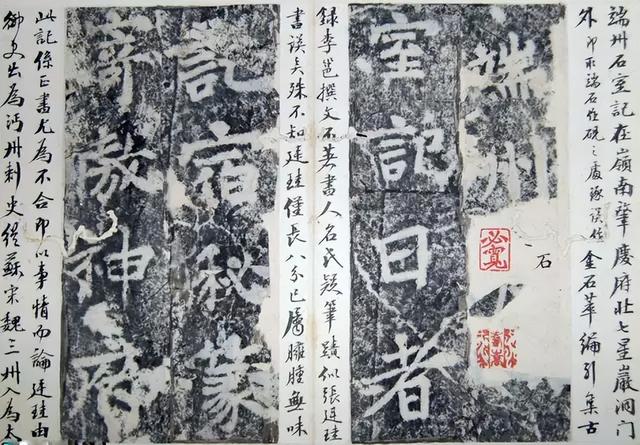 端州石室記在嶺南肇慶府北七星巖洞门
外即取端石作硯之處遂误作 金石萃編引集古
端州
石
室記曰者
錄李邕撰文不著書人名氏疑筆蹟似張廷珪
書误矣殊不知廷珪僅長八分已屬臃腫無味
記宿秘篆
神
此記係正書尤為不合即以事情而論廷珪由
御史出為沔州刺史從蘇宋魏三州入為太